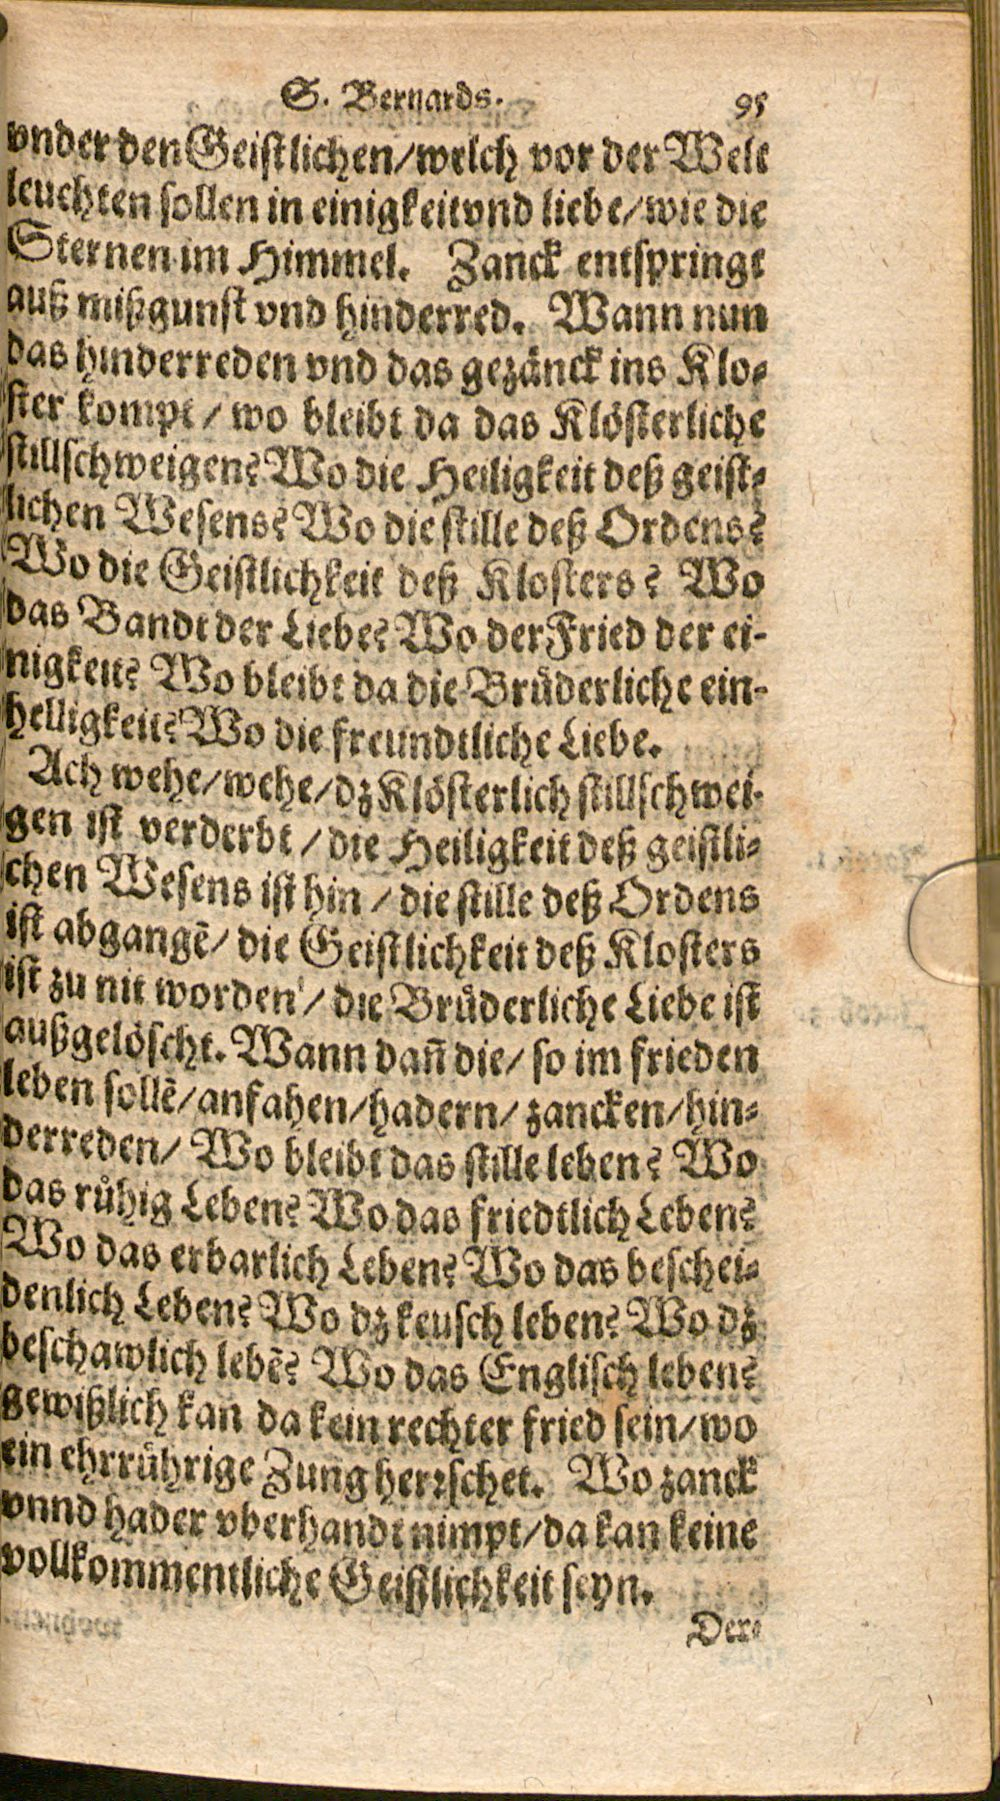 S. Bernards. 95
vnder den Geistlichen/welch vor der Welt
leuchten sollen in einigkeit vnd liebe/wie die
Sternen im Himmel. Zanck entspringt
auß mißgunst vnd hinderred. Wann nun
das hinderreden vnd das gezänck ins Klo-
ster kompt/wo bleibt da das Klösterliche
stillschweigen? Wo die Heiligkeit deß geist-
lichen Wesens? Wo die stille deß Ordens?
Wo die Geistlichkeit deß Klosters? Wo
das Bandt der Liebe? Wo der Fried der ei-
nigkeit? Wo bleibt da die Brůderliche ein-
helligkeit? Wo die freundtliche Liebe.
Ach wehe/wehe/dz Klösterlich stillschwei-
gen ist verderbt/die Heiligkeit deß geistli-
chen Wesens ist hin/die stille deß Ordens
ist abgangē/die Geistlichkeit deß Klosters
ist zu nit worden/die Brůderliche Liebe ist
außgelöscht. Wann dañ die/so im frieden
leben sollē/anfahen/hadern/zancken/hin-
derreden/Wo bleibt das stille leben? Wo
das růhig Leben? Wo das friedtlich Leben?
Wo das erbarlich Leben? Wo das beschei-
denlich Leben? Wo dz keusch leben? Wo dz
beschawlich lebē? Wo das Englisch leben?
gewißlich kan da kein rechter fried sein/wo
ein ehrrůhrige Zung herrschet. Wo zanck
vnnd hader vberhandt nimpt/da kan keine
vollkommentliche Geistlichkeit seyn.
Der-